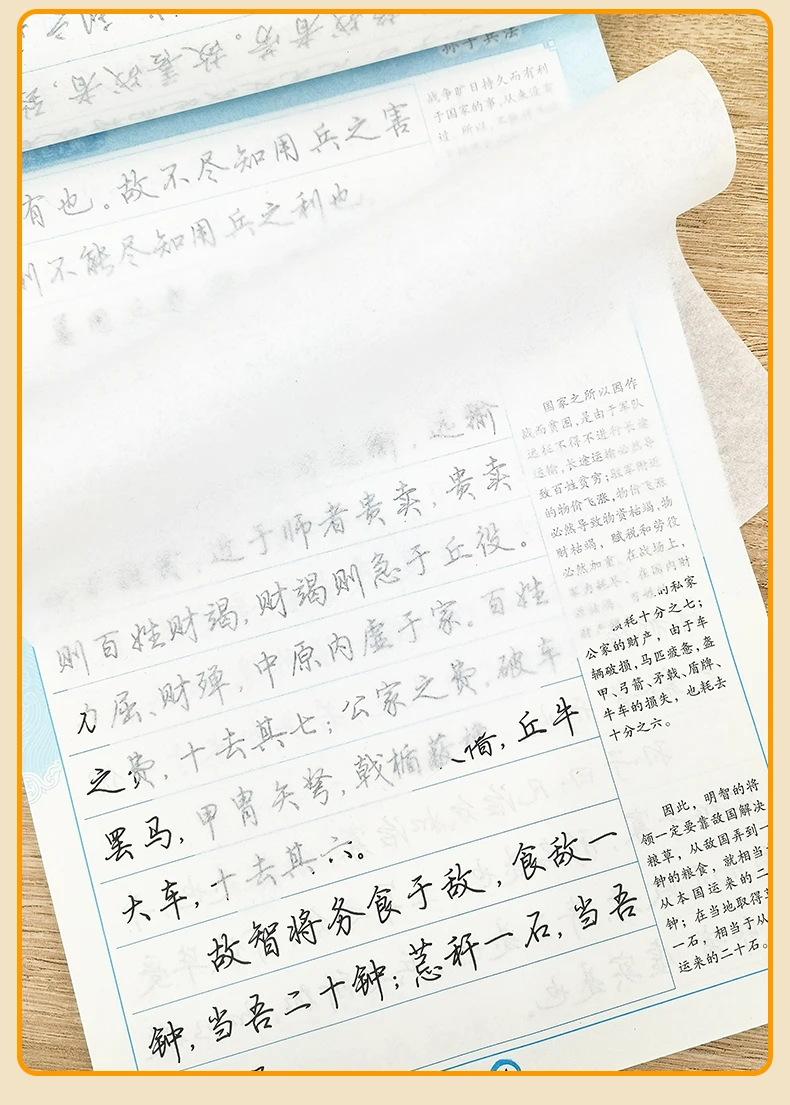 孙子兵法
战争旷日持久而有利
于国家的事，从来没有
过 所以，
有也。故不尽知用兵之害
不能尽知用兵之利也
，远输
近于师者贵卖，贵卖
则百姓财竭，财竭则急于丘役。
力屈、财殚，中原内虚于家。百姓
之费，十去其七；公家之费，破车
罢马，甲胄矢弩，戟楯蔽 ，丘牛
大车，十去其六。
故智将务食于敌，食敌一
钟，当吾二十钟；惎秆一石，当吾
国家之所以因作
战而贫困，是由于军队
远征不得不进行长途
运输，长途运输必然导
致百姓贫穷；驻军附近
的物价飞涨，物价飞涨
必然导致物资枯竭，物
财枯竭，赋税和劳役
必然加重。在战场上，
军力耗尽，在国内财
的私家
耗十分之七；
公家的财产，由于车
辆破损，马匹疲惫，盔
甲、弓箭、矛戟、盾牌、
牛车的损失，也耗去
十分之六。
因此，明智的将
领一定要靠敌国解决
粮草，从敌国弄到一
钟的粮食，就相当
从本国运来的二
钟；在当地取得
一石，相当于从
运来的二十石。